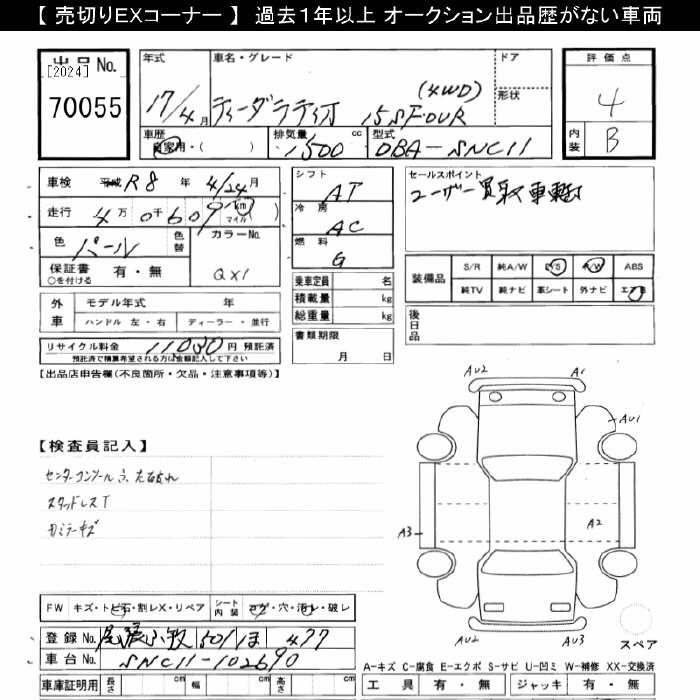 【 売切りEXコーナー 】 過去1年以上 オークション出品歴がない車両
出品 No.
[2024]
70055
年式 車名・グレード ドア
17/4月 ティーダラティオ 15S FOUR (4WD) 形状
車歴 排気量 cc 型式
自家用・( ) 1500 DBA-SNC11
評価点
4
内装 B
車検 平成 R8 年 4/24 月
走行 4万 0千609 km マイル ( )
色 パール 色替 カラーNo. QX1
保証書 有・無
○を付ける
外車 モデル年式 年
ハンドル 左・右 ディーラー・並行
リサイクル料金 11030 円 預託済
預託済で精算希望される方は金額記入して下さい
【出品店申告欄(不良箇所・欠品・注意事項等)】
シフト AT
冷房 AC
燃料 G
乗車定員 名
積載量 kg
総重量 kg
書類期限
月 日
セールスポイント
ユーザー買取車輌
装備品 S/R 純A/W P/S A/W ABS
純TV 純ナビ 革シート 外ナビ エアB
後日品
【検査員記入】
スタッドレスT
FW キズ・トビ石・割レX・リペア シート内装 コゲ・穴・汚レ・破レ
登録No. 尾張小牧 501 ほ 477
車台No. SNC11-102690
車庫証明用 長さ cm 幅 cm 高さ cm
AU2 A1
AU1
A3 A2
AU2 AU3
スペア
A-キズ C-腐食 E-エクボ S-サビ U-凹ミ W-補修 XX-交換済
工具 有・無 ジャッキ 有・無